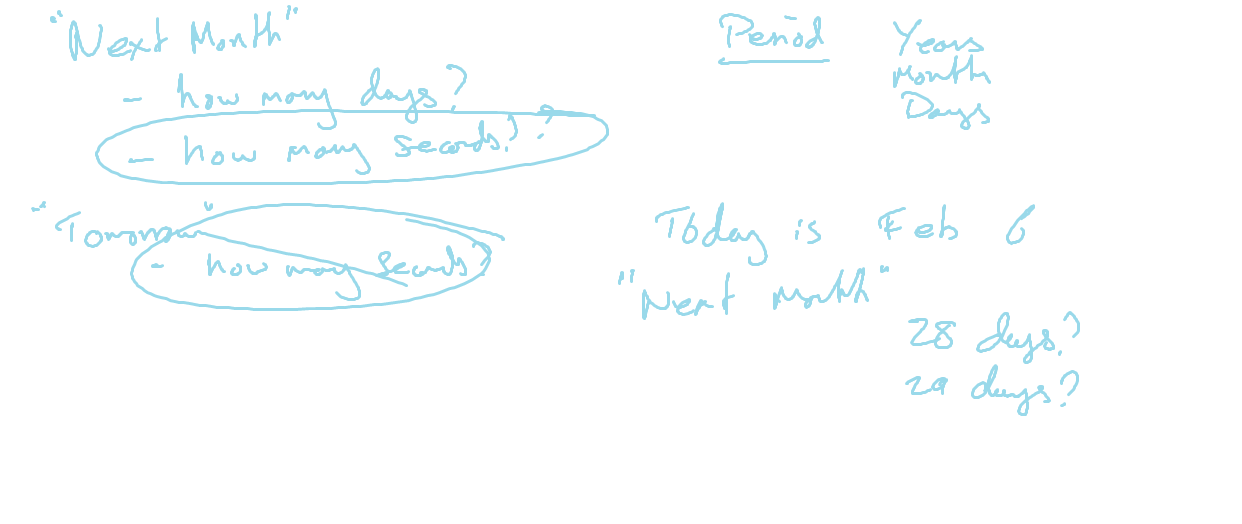 "Next Month"
- how many days?
- how many seconds? ?
"Tomorrow"
- how many seconds?
Period
Years
Month
Days
Today is Feb 6
"Next Month"
28 days?
29 days?